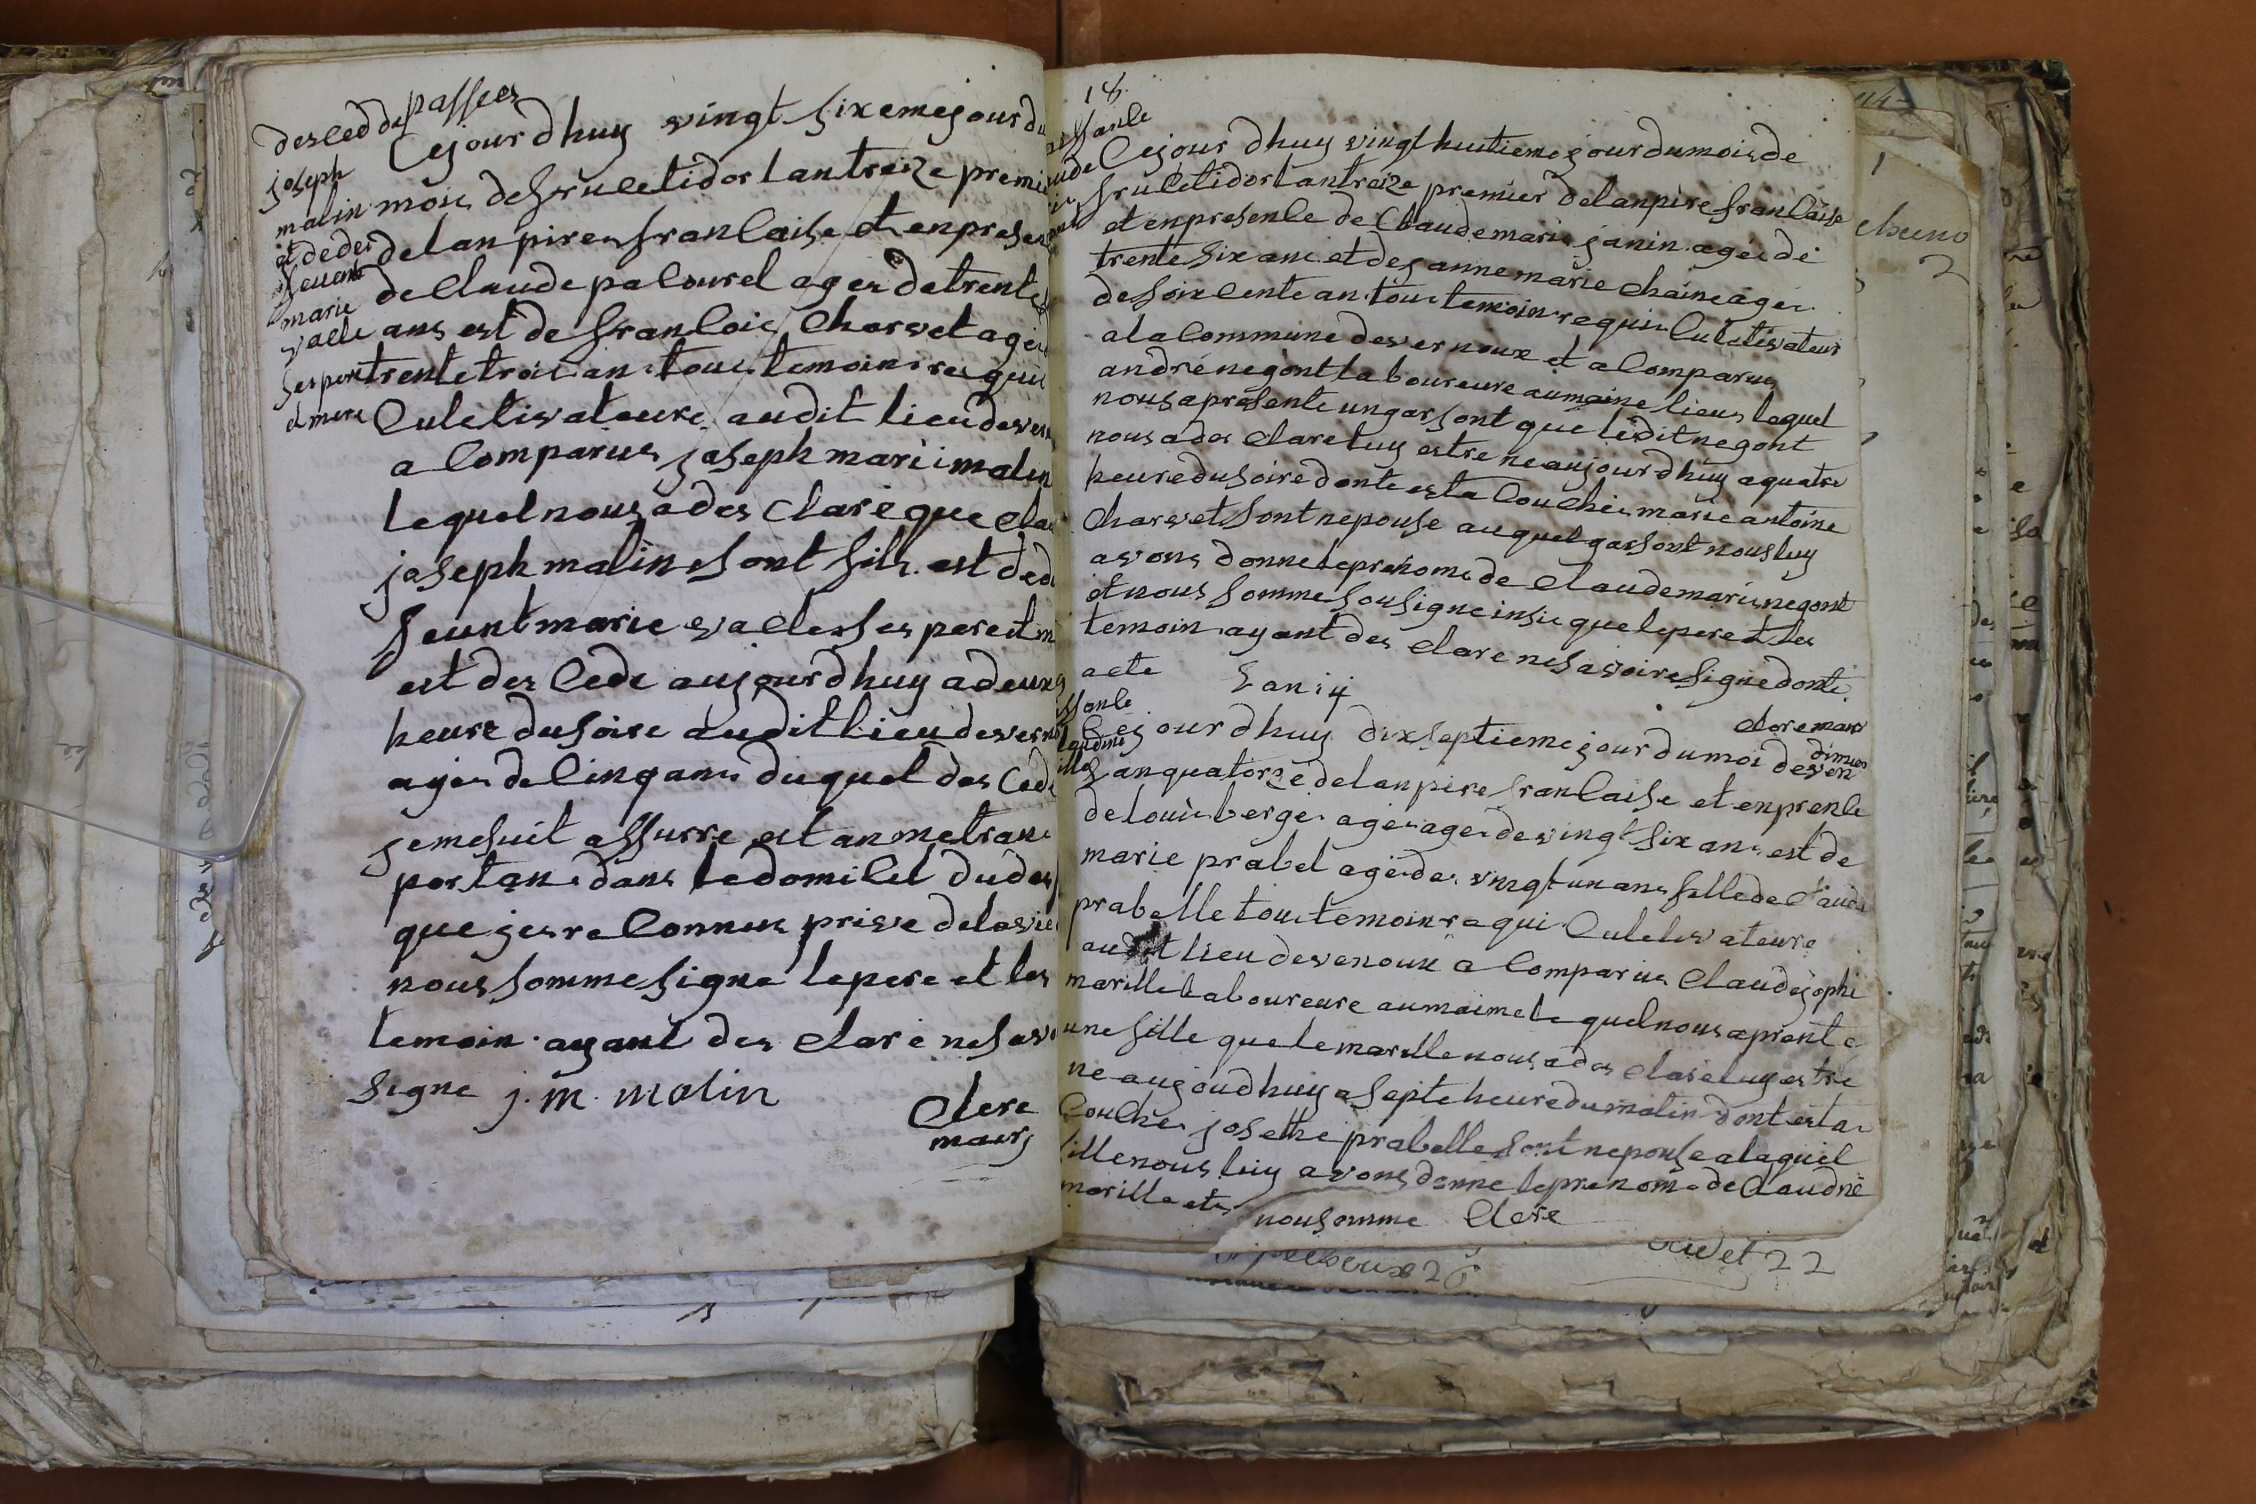 desced de passees
joseph
malin
et de der
sceunt
marie
valle
ses pere
et mere
Cejour dhuy vingt sixeme jour du
mois de fructidor lan treize premie
de lan pire francaise et en presen
de Claude pacourel ages de trente
ans est de francois Charvet ages
trente trois ans tous temoins requis
Culetivateure audit lieu de ver
a Comparus joseph marie malin
lequel nous a des Clare que Clau
joseph malin sont fils est ded
seunt marie valle ses pere et m
est des Cede aujourdhuy a deux
heure du soire audit lieu de vern
ages de Cinq ans duquel des Cede
je me suit assurre est an me trans
portans dans le domicel du des
que jes re Connus prive de la vie
nous somme signe le pere et les
temoin ayant des Clare ne sav
signe j. m. malin
Clere
maire
18
Cejour dhuy vingt huitieme jour du mois de
fructidor lan treize premier de lanpire francaise
et en presence de Claude marie janin ages de
trente six ans et des anne marie Chaine ages
de soixcente ans tous temoins requis Culetivateur
a la Commune de vernoux et a Comparus
andré negont laboureure au maime lieus lequel
nous a presente un garsont que ledit negont
nous a des Clare luy estre ne aujourdhuy a quatre
heure du soire donte est a Couches marie antoine
Charvet sont nepouse auquel garsont nous luy
avons donne le prenome de Claude marie negont
et nous somme sousigne insie que le pere et les
temoin ayant des Clare ne savoire signe donte
acte
Clere maire
Cejour dhuy dix septieme jour du moi de ven
dimier
lan quatorze de lanpire francaise et en prence
de louis berger ages ages de vingt six ans est de
marie prabel ages de vingt un ans fille de Claude
prabelle tous temoin requi Culetivateure
audit lieu de venoux a Comparus Claude joph
marille laboureure au maime lequel nous a prente
une fille que le marille nous a des Clare luy estre
ne aujoudhuy a septe heure du matin dont est a
Couches josethe prabelle sont nepouse a laquel
fille nous luy avons donne le prenome de Claudne
marille et nous somme Clere
22